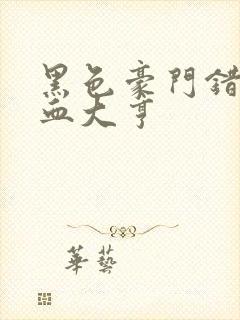 黑色豪門錯
血大亨
華藝